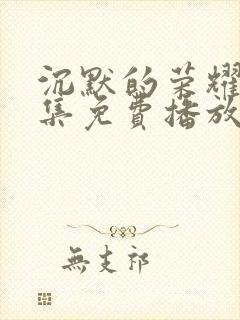 沉默的荣耀
集免费播放
無支祁